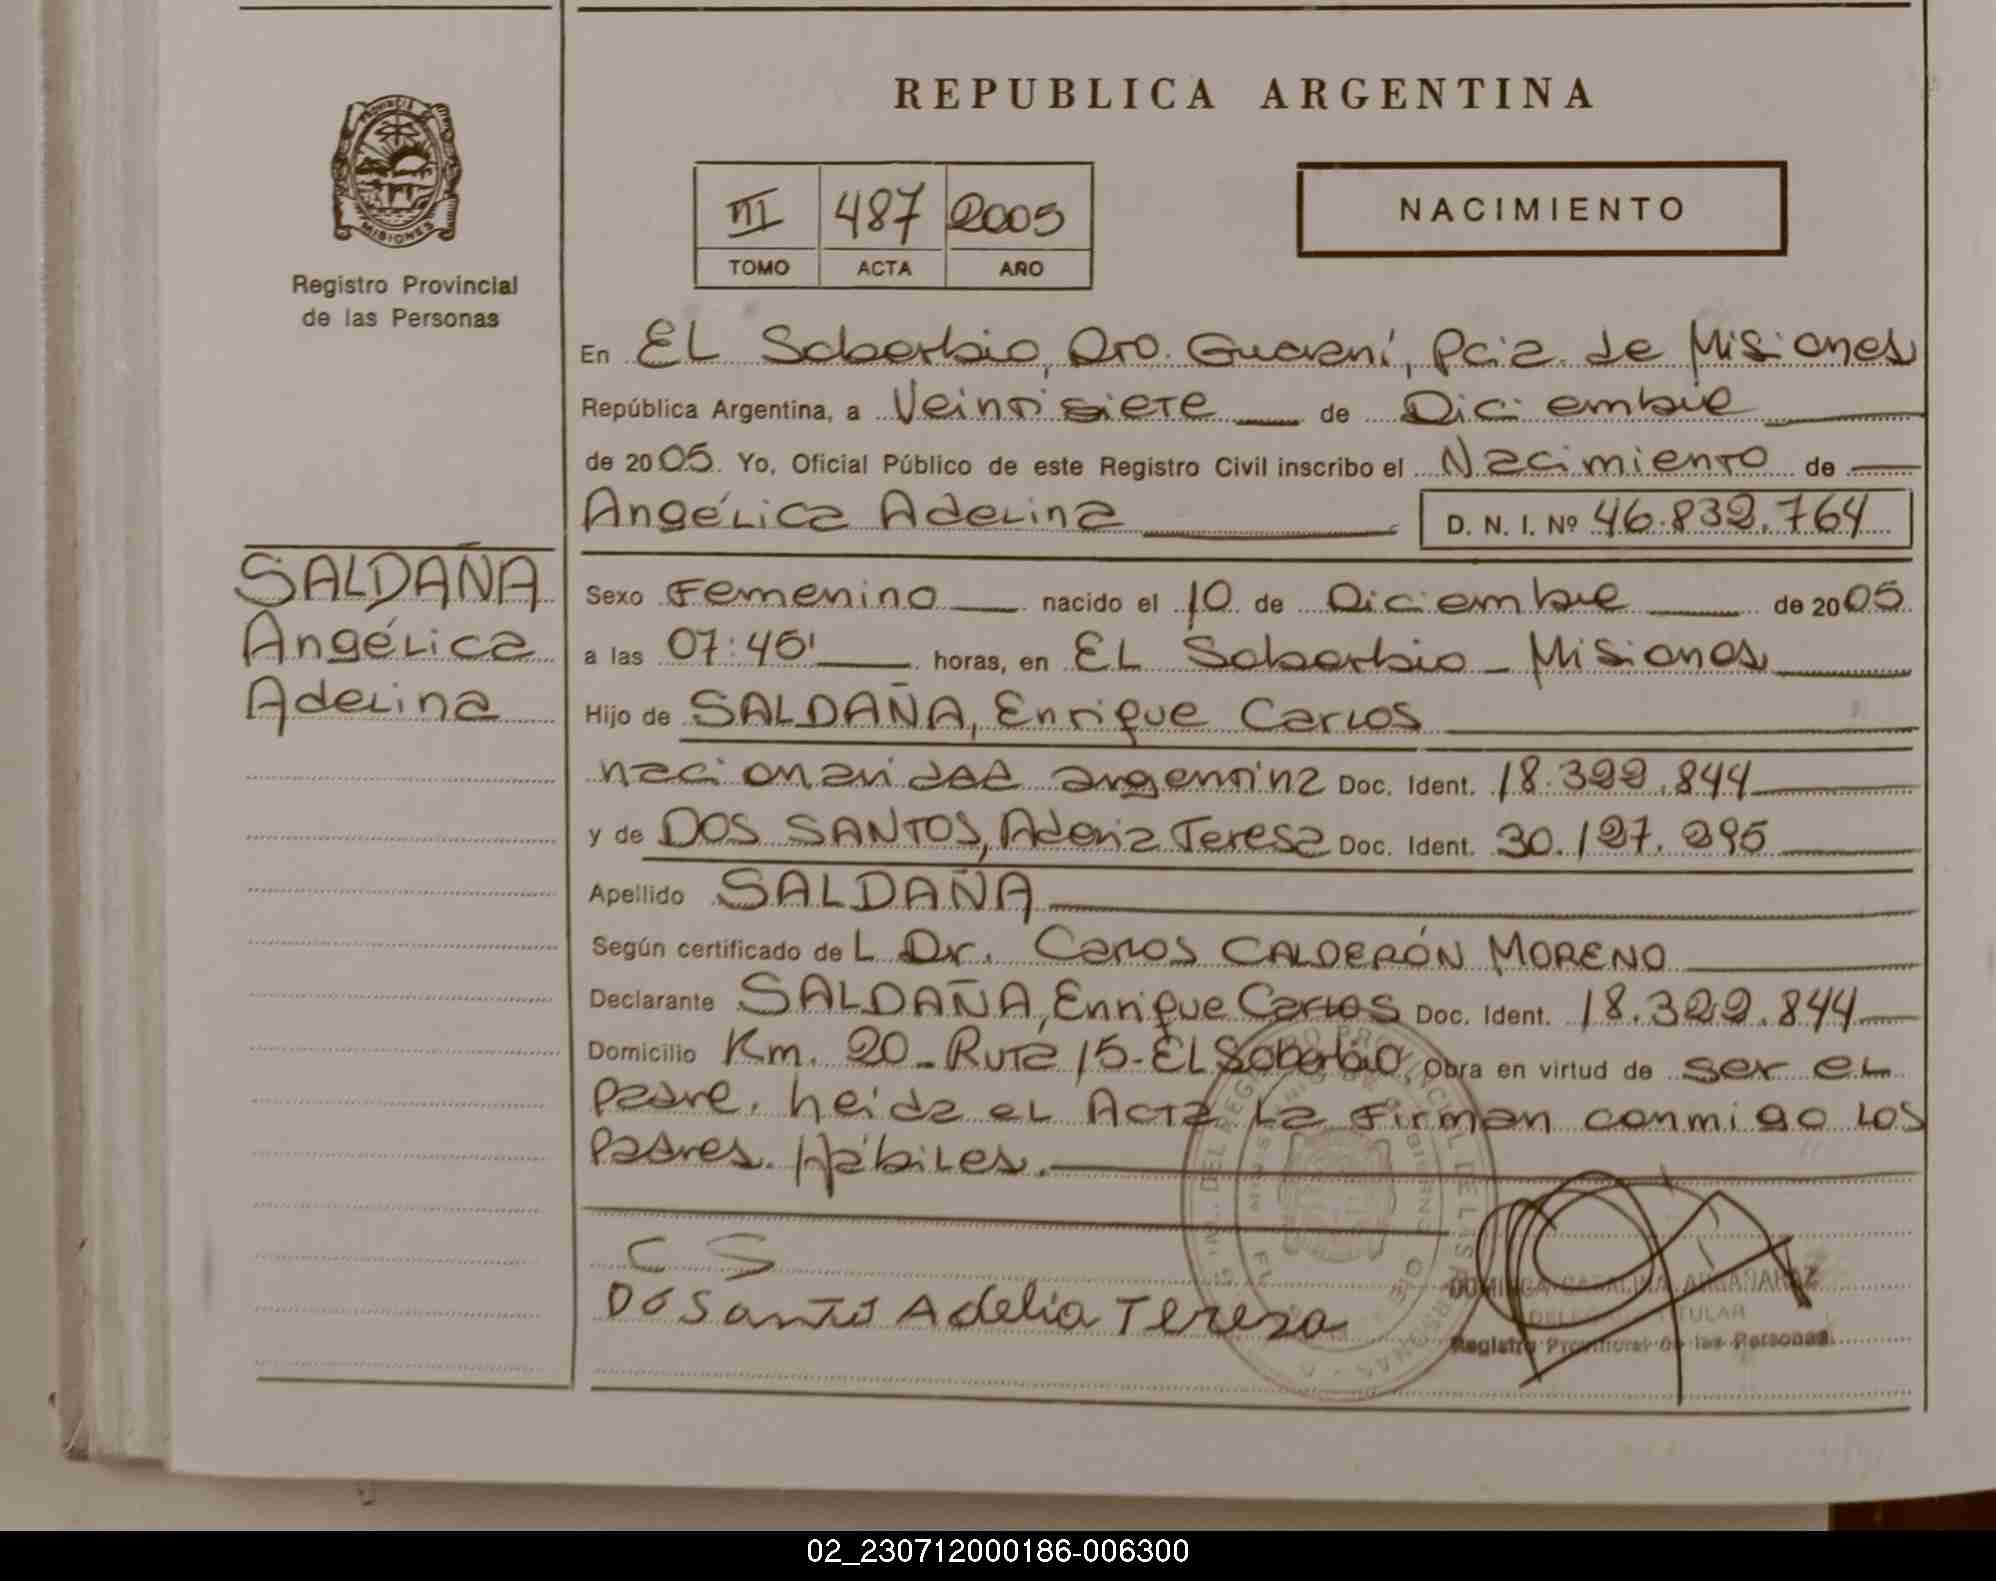 REPUBLICA ARGENTINA
PROVINCIA
MISIONES
Registro Provincial
de las Personas
III 487 2005
TOMO ACTA AÑO
NACIMIENTO
En EL Soberbio, Dto. Guaraní, Pcia. de Misiones
República Argentina, a Veintisiete de Diciembre
de 2005. Yo, Oficial Público de este Registro Civil inscribo el Nacimiento de
Angélica Adelina D. N. I. Nº 46.832.764
SALDAÑA
Angélica
Adelina
Sexo Femenino nacido el 10 de Diciembre de 2005
a las 07:45' horas, en EL Soberbio - Misiones
Hijo de SALDAÑA, Enrique Carlos
nacionalidad argentina Doc. Ident. 18.322.844
y de DOS SANTOS, Adelia Teresa Doc. Ident. 30.127.295
Apellido SALDAÑA
Según certificado de L Dr. Carlos CALDERÓN MORENO
Declarante SALDAÑA, Enrique Carlos Doc. Ident. 18.322.844
Domicilio Km. 20 - Ruta 15 - EL Soberbio. Obra en virtud de ser el
Padre. Leida el Acta La Firman conmigo Los
Padres. Hábiles.
C S
Dó Santó Adelia Tereza
DOMINGA CATALINA ARGAÑARAZ
TITULAR
Registro Provincial de las Personas
02_230712000186-006300